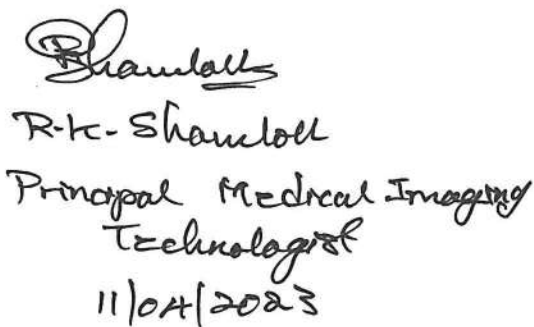 R.K. Shamloll
Principal Medical Imaging
Technologist
11/04/2023